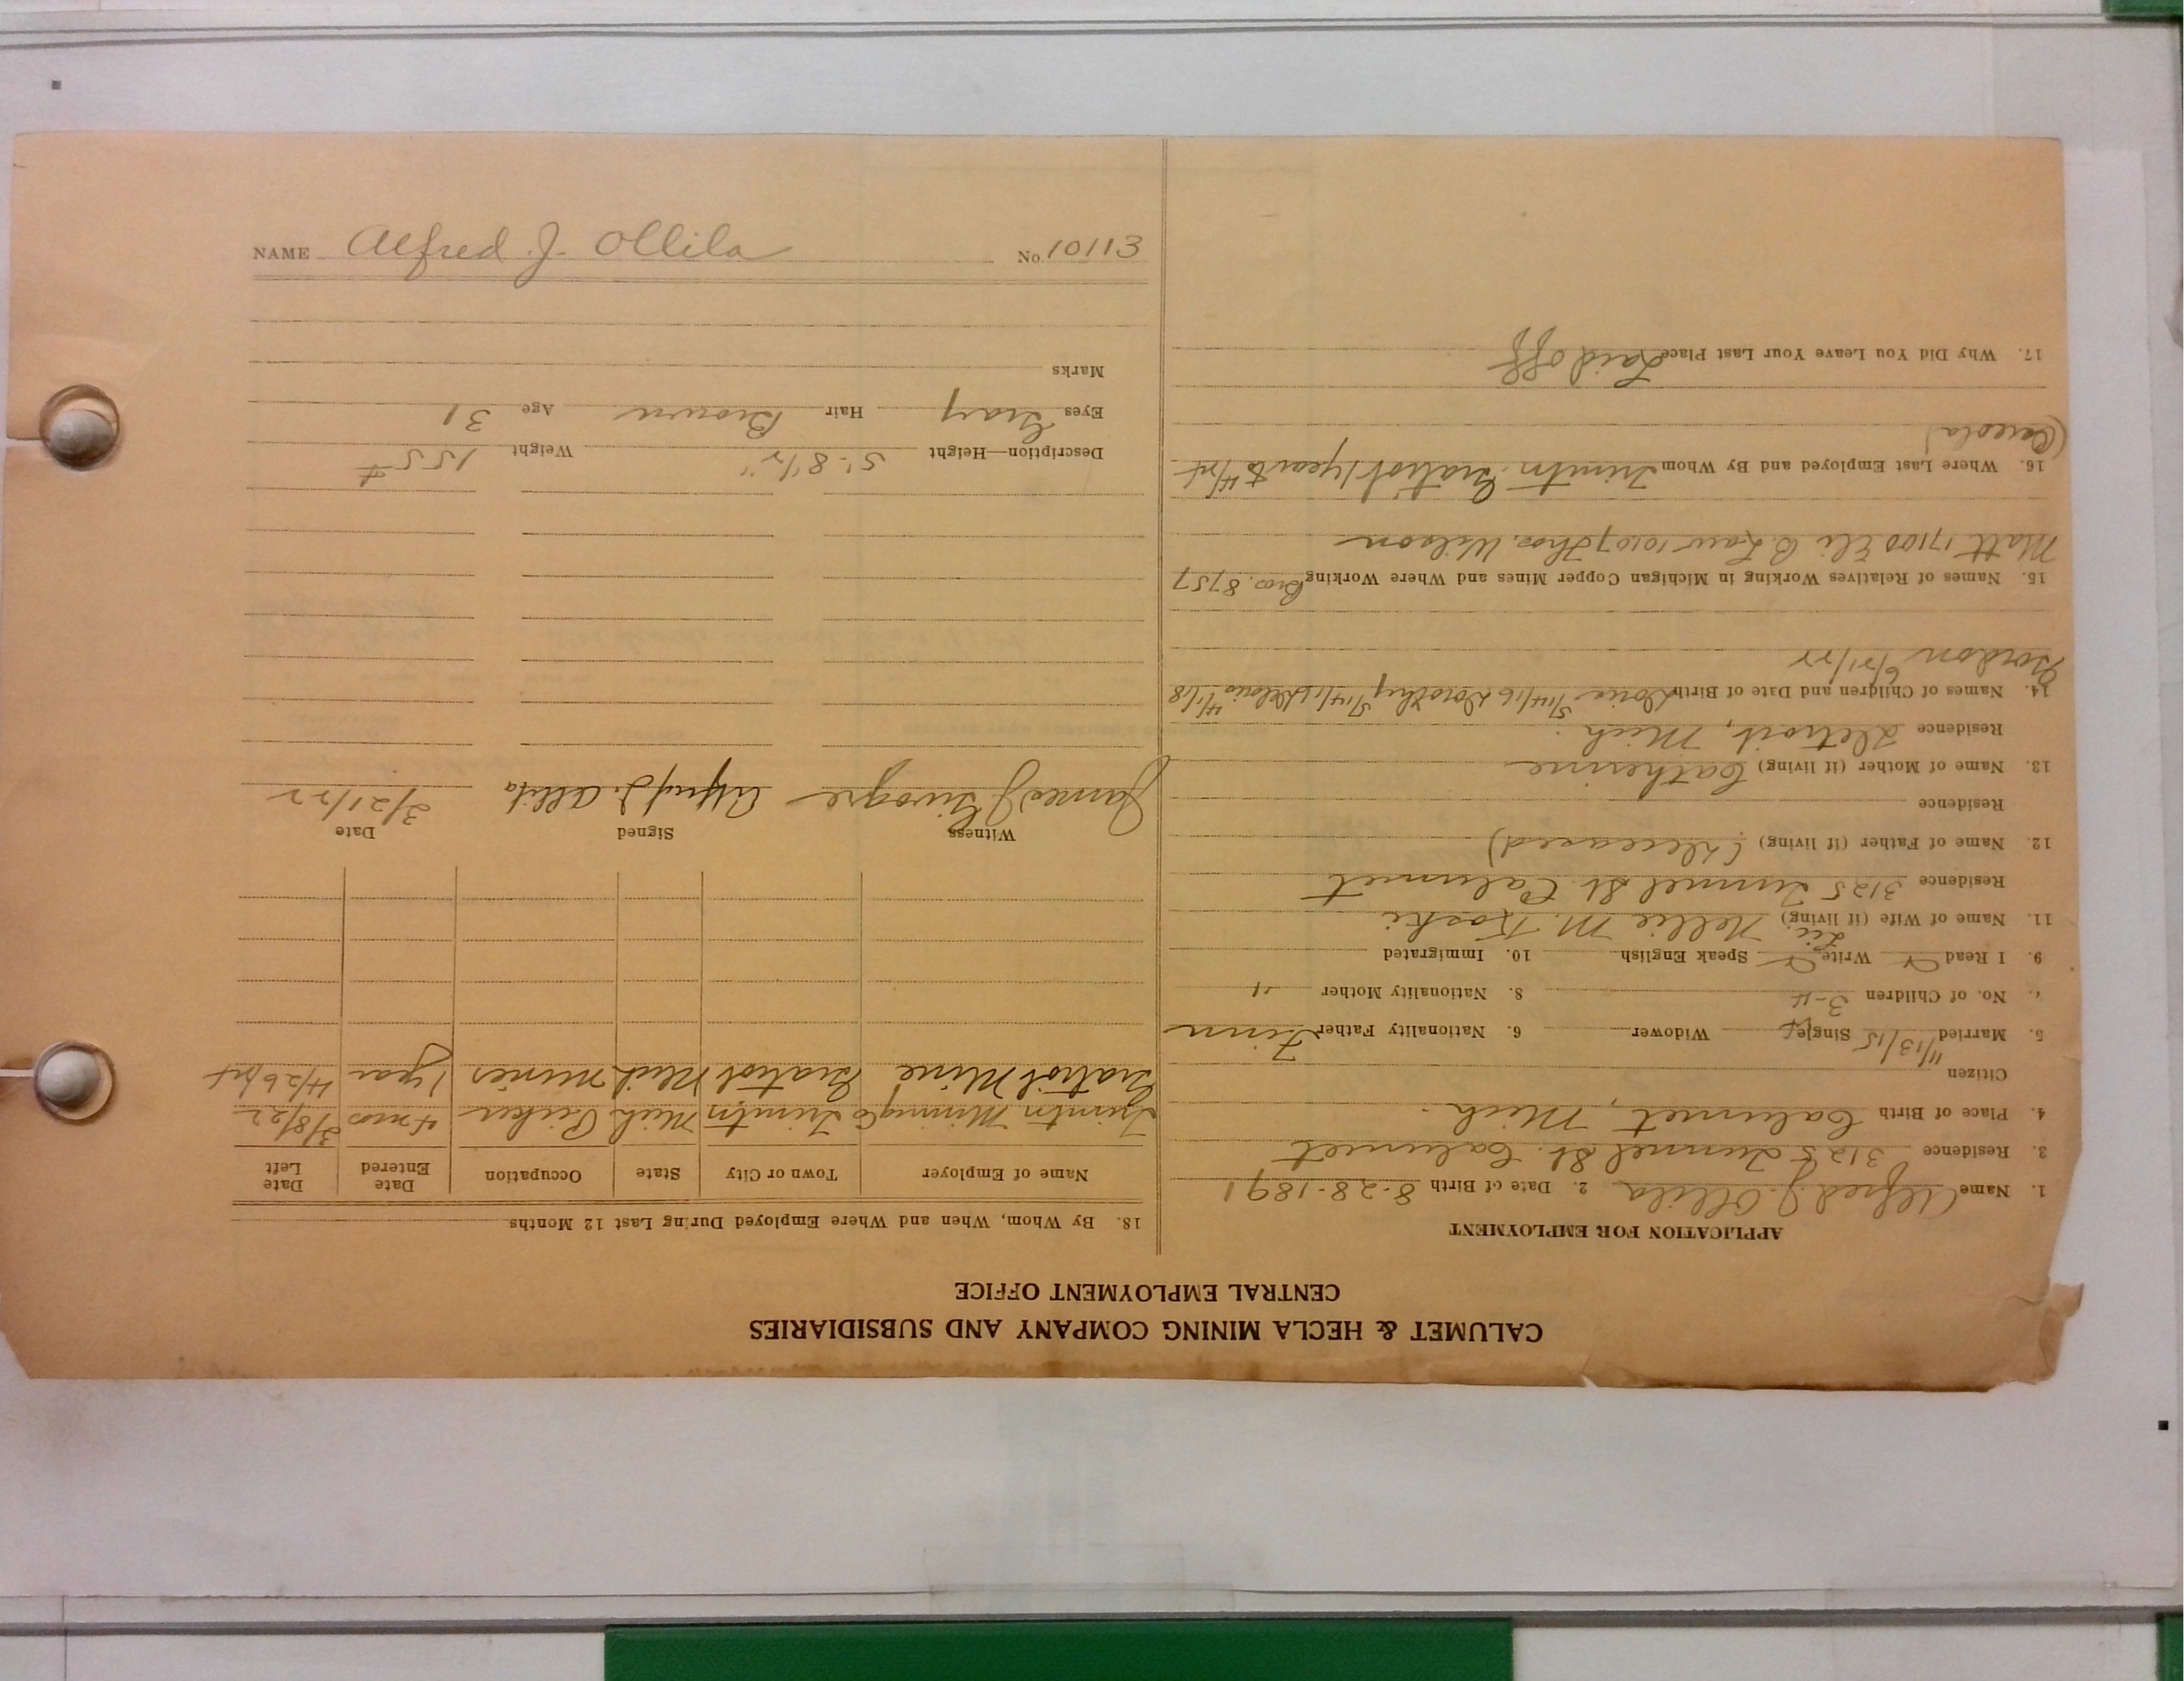 CALUMET & HECLA MINING COMPANY AND SUBSIDIARIES
CENTRAL EMPLOYMENT OFFICE
APPLICATION FOR EMPLOYMENT
1. Name Alfred J. Ollila 2. Date of Birth 8-28-1891
3. Residence 3125 Tunnel St. Calumet
4. Place of Birth Calumet, Mich.
Citizen
5. Married 11/13/15 Single Widower 6. Nationality Father Finn
7. No. of Children 3-4 8. Nationality Mother "
9. I Read Write Speak English 10. Immigrated
11. Name of Wife (if living) Nellie M. Koski
Residence 3125 Tunnel St. Calumet
12. Name of Father (if living) (Deceased)
Residence
13. Name of Mother (if living) Catherine
Residence Detroit, Mich.
14. Names of Children and Date of Birth Doris 5/14/16 Dorothy 5/14/16 4/1/18
Gordon 6/21/22
15. Names of Relatives Working in Michigan Copper Mines and Where Working Bros. 8757
Matt 17100 Eli B. Law 10107 Thos. Wilson
16. Where Last Employed and By Whom Trimtn. Gratiot 1 year to
(Osceola)
17. Why Did You Leave Your Last Place Laid off
18. By Whom, When and Where Employed During Last 12 Months
Name of Employer Town or City State Occupation Date Entered Date Left
Trimtn Mining Co Trimtn Mich Picker 4 mos 3/8/22
Gratiot Mine Gratiot Mich miner 1 year
Witness Signed Date
James J. Alfred J. Ollila 3/21/22
Description—Height 5'-8 1/2" Weight 155 #
Eyes Gray Hair Brown Age 31
Marks
NAME Alfred J. Ollila No. 10113